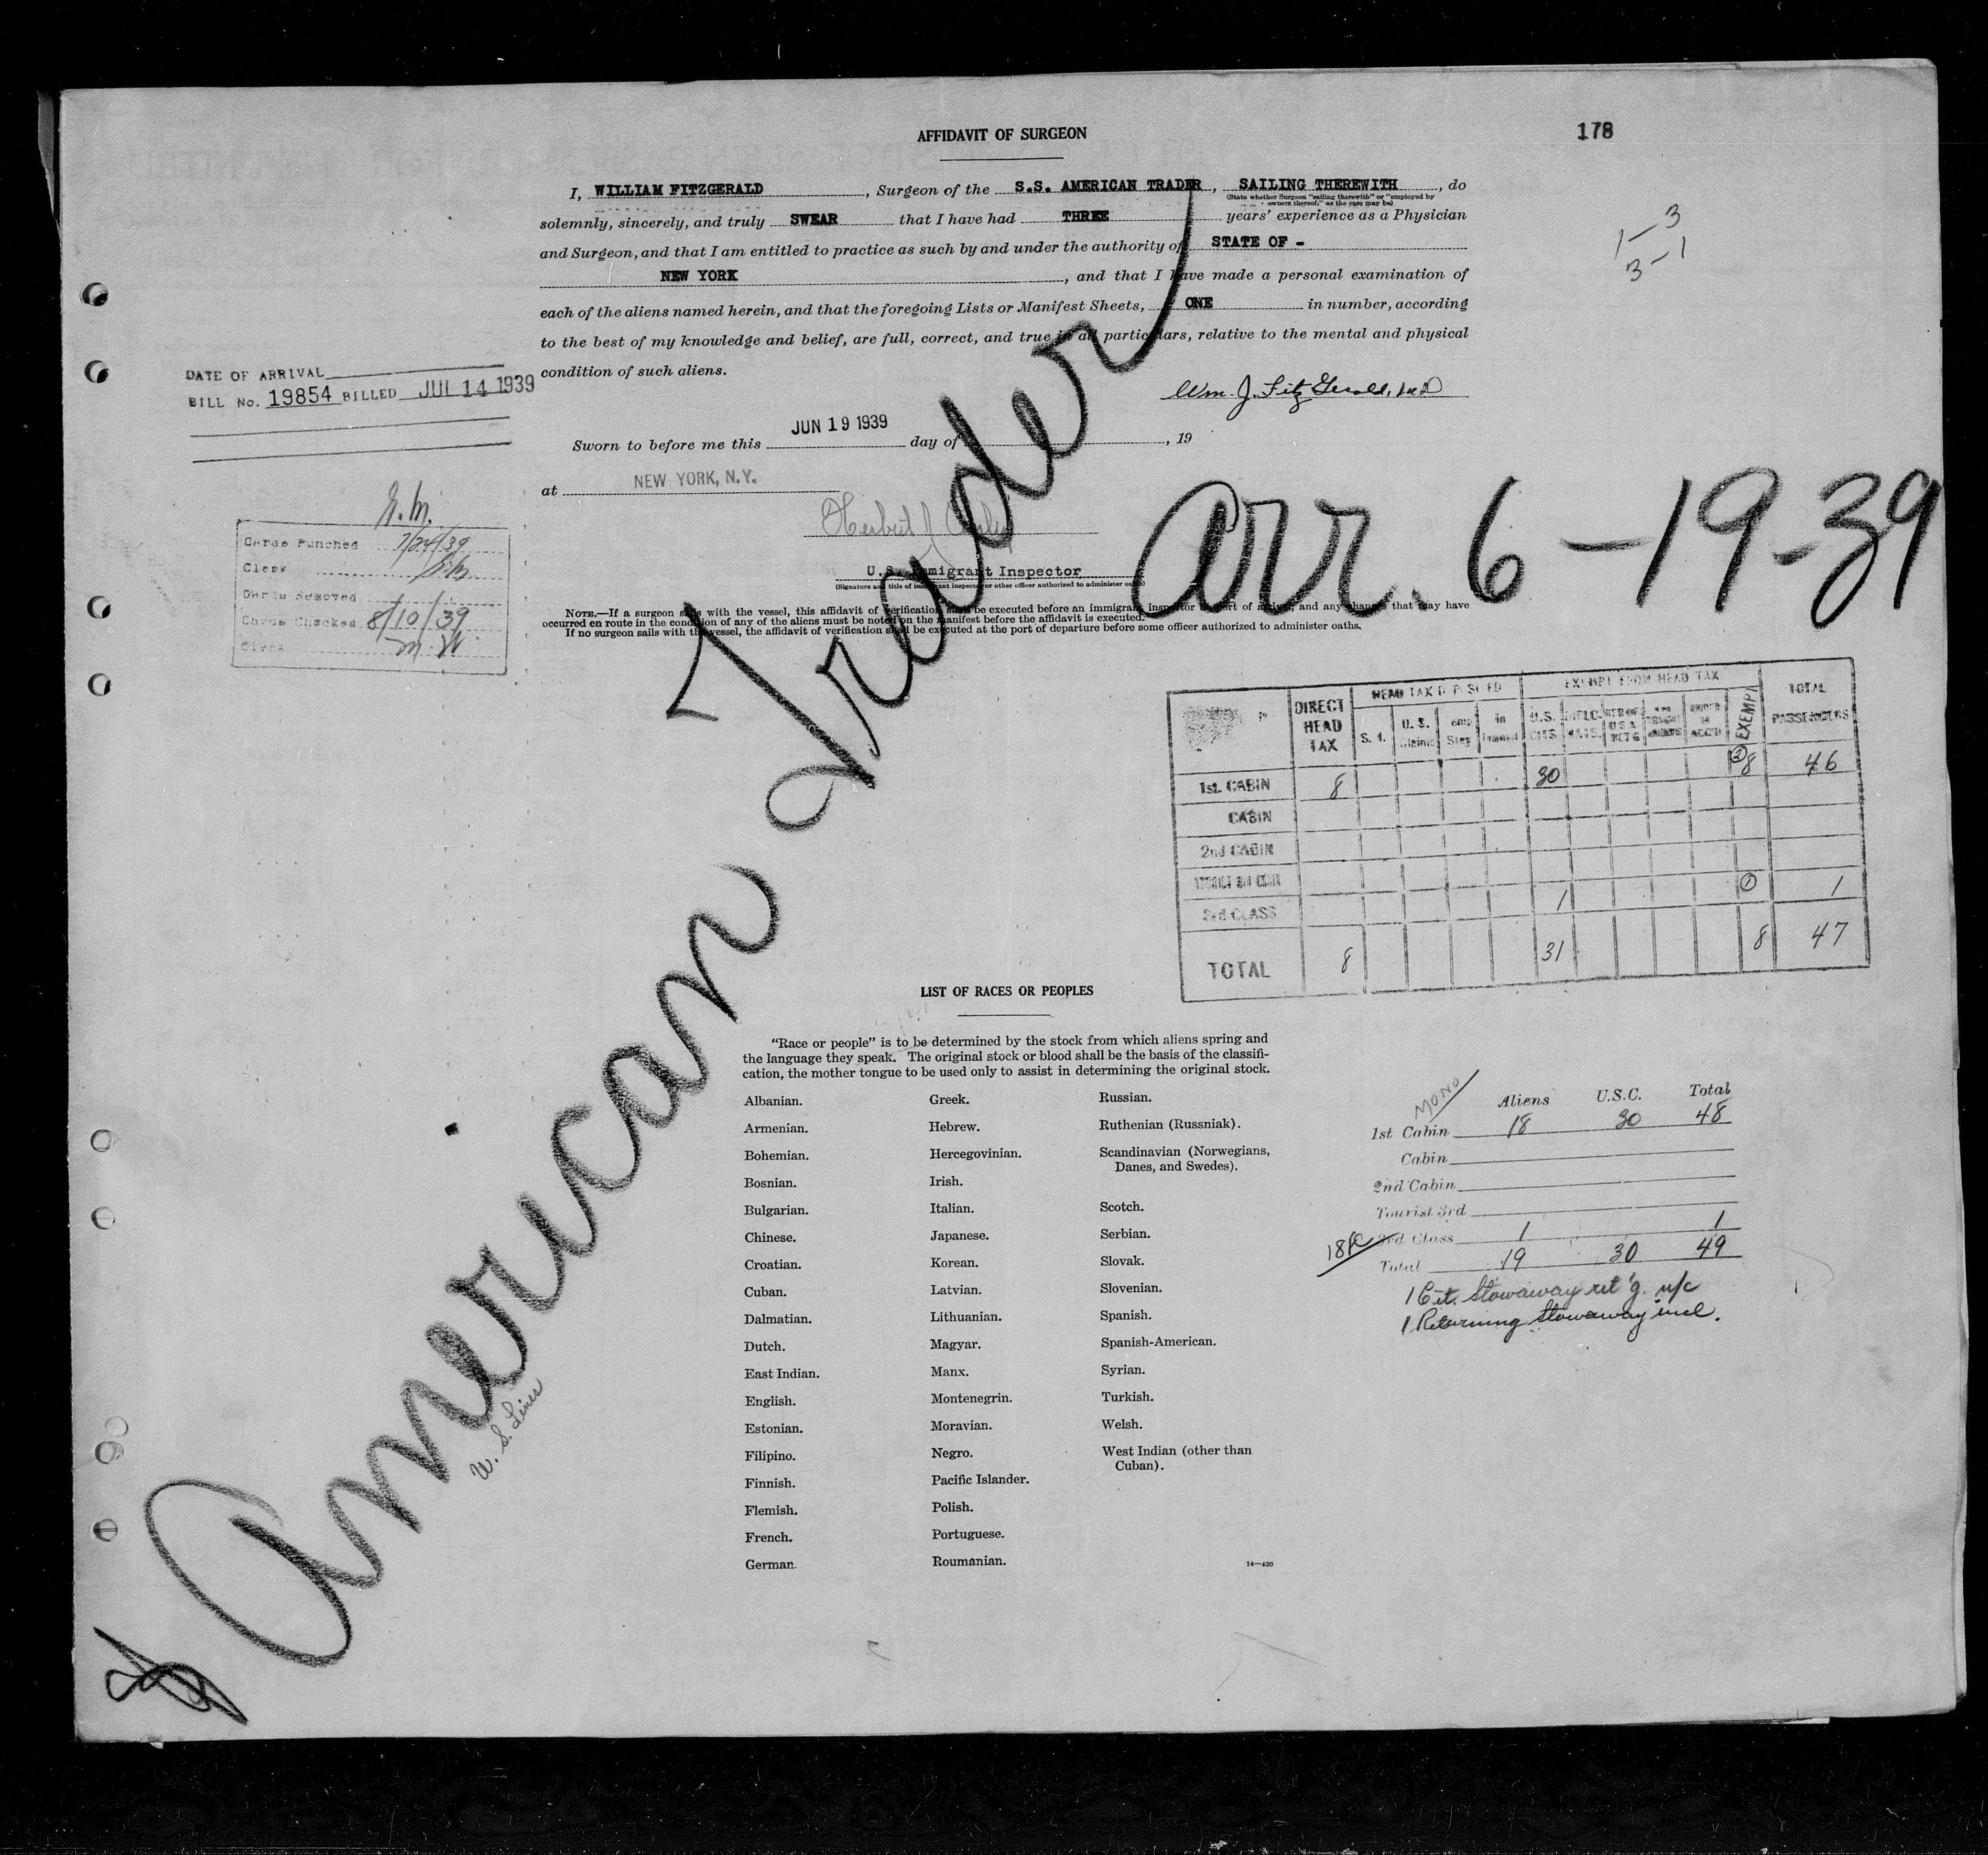 AFFIDAVIT OF SURGEON
178
I, WILLIAM FITZGERALD, Surgeon of the S.S. AMERICAN TRADER, SAILING THEREWITH, do
(State whether Surgeon "sailing therewith" or "employed by
owners thereof," as the case may be)
solemnly, sincerely, and truly SWEAR that I have had THREE years' experience as a Physician
and Surgeon, and that I am entitled to practice as such by and under the authority of STATE OF -
NEW YORK, and that I have made a personal examination of
each of the aliens named herein, and that the foregoing Lists or Manifest Sheets, ONE in number, according
to the best of my knowledge and belief, are full, correct, and true in all particulars, relative to the mental and physical
condition of such aliens.
1-3
3-1
DATE OF ARRIVAL
BILL No. 19854 BILLED JUL 14 1939
Wm. J. Fitz Gerald, M.D
Sworn to before me this JUN 19 1939 day of , 19
at NEW YORK, N.Y.
Herbert J.
U.S. Immigrant Inspector
(Signature and title of immigrant inspector or other officer authorized to administer oaths)
NOTE.—If a surgeon sails with the vessel, this affidavit of verification shall be executed before an immigrant inspector at port of arrival, and any changes that may have
occurred en route in the condition of any of the aliens must be noted on the manifest before the affidavit is executed.
If no surgeon sails with the vessel, the affidavit of verification shall be executed at the port of departure before some officer authorized to administer oaths.
Cards Punched 7/24/39
Clerk
Cards Removed
Cards Checked 8/10/39
Clerk M.W.
American Trader
arr. 6-19-39
U.S. Lines
DIRECT HEAD TAX
HEAD TAX DEPOSITED
EXEMPT FROM HEAD TAX
TOTAL PASSENGERS
S. I. U.S. U.S. CITS. EXEMPT
1st. CABIN 8 30 (2) 8 46
CABIN
2nd CABIN
TOURIST 3rd CABIN
3rd CLASS 1 (1) 1
TOTAL 8 31 8 47
LIST OF RACES OR PEOPLES
"Race or people" is to be determined by the stock from which aliens spring and
the language they speak. The original stock or blood shall be the basis of the classifi-
cation, the mother tongue to be used only to assist in determining the original stock.
Albanian.
Armenian.
Bohemian.
Bosnian.
Bulgarian.
Chinese.
Croatian.
Cuban.
Dalmatian.
Dutch.
East Indian.
English.
Estonian.
Filipino.
Finnish.
Flemish.
French.
German.
Greek.
Hebrew.
Hercegovinian.
Irish.
Italian.
Japanese.
Korean.
Latvian.
Lithuanian.
Magyar.
Manx.
Montenegrin.
Moravian.
Negro.
Pacific Islander.
Polish.
Portuguese.
Roumanian.
Russian.
Ruthenian (Russniak).
Scandinavian (Norwegians,
Danes, and Swedes).
Scotch.
Serbian.
Slovak.
Slovenian.
Spanish.
Spanish-American.
Syrian.
Turkish.
Welsh.
West Indian (other than
Cuban).
14—430
MONO
Aliens U.S.C. Total
1st Cabin 18 30 48
Cabin
2nd Cabin
Tourist 3rd
3rd Class 1 1
Total 19 30 49
1 Cit. Stowaway ret'g. n/c
1 Returning Stowaway incl.